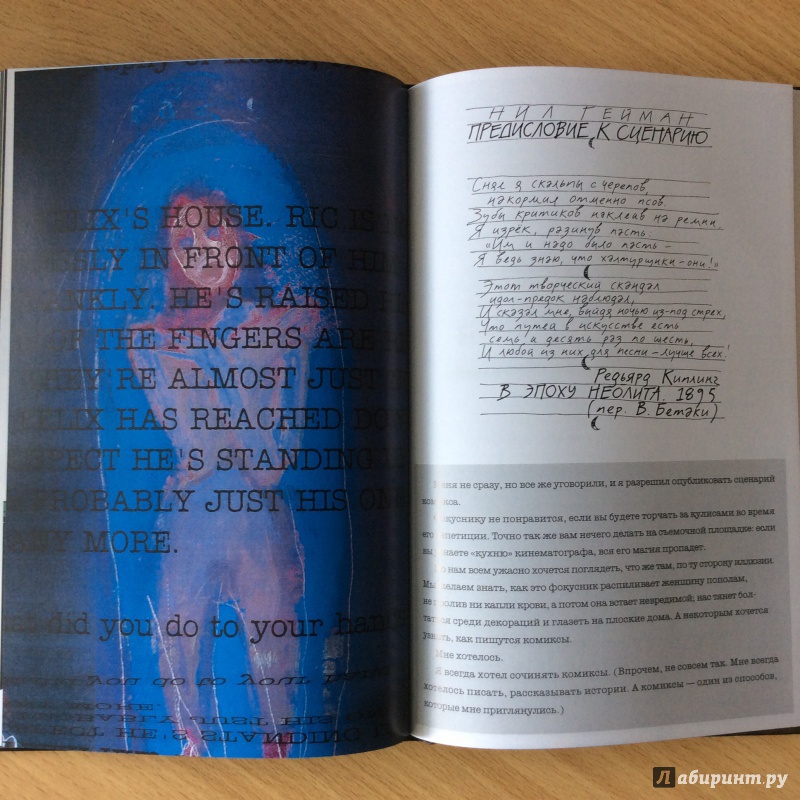 ELIX'S HOUSE. RIC IS
SLY IN FRONT OF HI
ANKLY. HE'S RAISED
OF THE FINGERS ARE
THEY'RE ALMOST JUST
FELIX HAS REACHED DO
SPECT HE'S STANDING
PROBABLY JUST HIS ON
MORE.
did you do to your han
НИЛ ГЕЙМАН
ПРЕДИСЛОВИЕ К СЦЕНАРИЮ
Сняв я скальпы с черепов,
накормил отменно псов.
Зубы критиков наклеив на ремни.
Я изрёк, разинув пасть:
«Им и надо было пасть –
Я ведь знаю, что халтурщики – они!»
Этот творческий скандал
идол-предок наблюдал,
И сказал мне, выйдя ночью из-под стрех,
Что путей в искусстве есть
семь и десять раз по шесть,
И любой из них для песни – лучше всех!
Редьярд Киплинг
В ЭПОХУ НЕОЛИТА. 1895
(пер. В. Бетаки)
Меня не сразу, но все же уговорили, и я разрешил опубликовать сценарий
комикса.
Фокуснику не понравится, если вы будете торчать за кулисами во время
его репетиции. Точно так же вам нечего делать на съемочной площадке: если
вы узнаете «кухню» кинематографа, вся его магия пропадет.
Но нам всем ужасно хочется поглядеть, что же там, по ту сторону иллюзии.
Мы желаем знать, как это фокусник распиливает женщину пополам,
не пролив ни капли крови, а потом она встает невредимой; нас тянет бол-
таться среди декораций и глазеть на плоские дома. А некоторым хочется
узнать, как пишутся комиксы.
Мне хотелось.
Я всегда хотел сочинять комиксы. (Впрочем, не совсем так. Мне всегда
хотелось писать, рассказывать истории. А комиксы — один из способов,
которые мне приглянулись.)
Лабиринт.ру